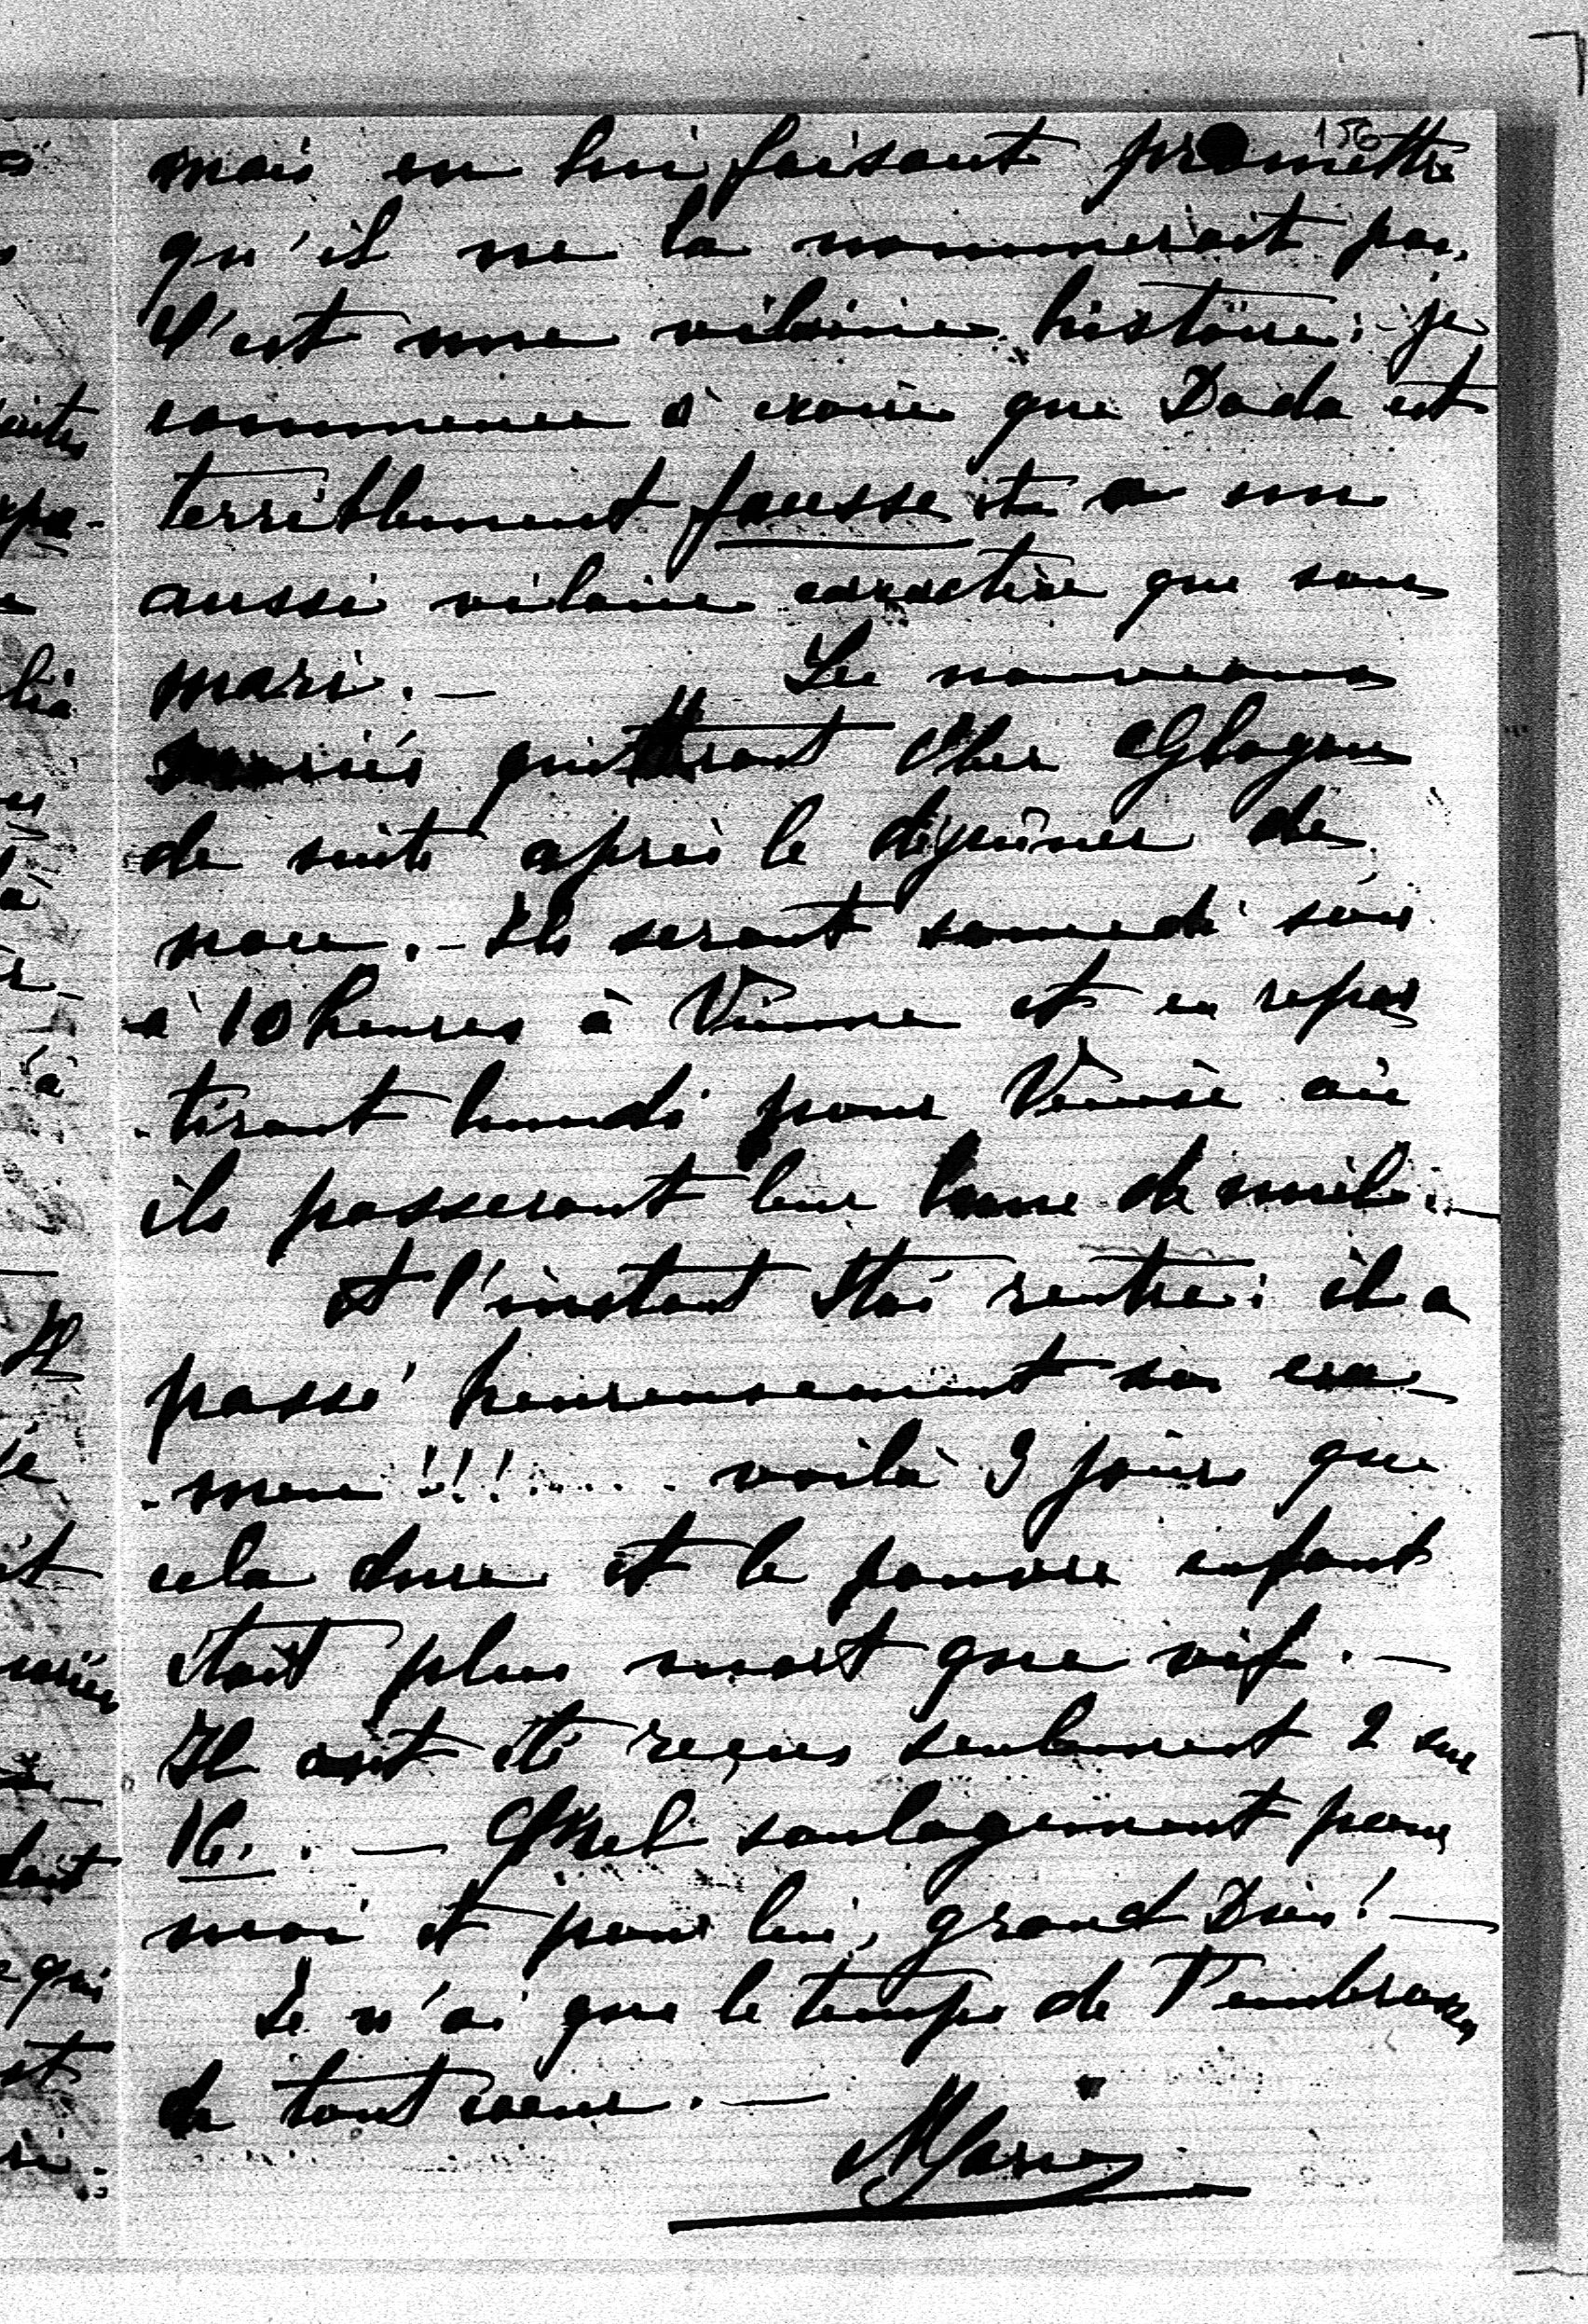 156
mais en lui faisant promettre
qu'il ne la nommerait pas.
C'est une vilaine histoire: je
commence à croire que Dada est
terriblement fausse et a un
aussi vilain caractère que son
mari. — Les nouveaux
mariés quitteront Ober Glogau
de suite après le déjeûner de
noce. — Ils seront samedi soir
à 10 heures à Vienne et en repar
-tiront lundi pour Venise où
ils passeront leur lune de miel. —
A l'instant rentre: il a
passé heureusement son exa-
-men!!!.... voilà 3 jours que
cela dure et le pauvre enfant
était plus mort que vif. —
Il ont été reçus seulement 2 sur
16. — Quel soulagement pour
moi et pour lui, grand Dieu! —
Je n'ai que le temps de t'embrasser
de tout coeur. —
Marie